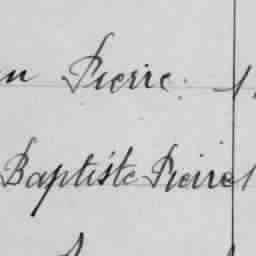 Pierre.
Baptiste Pierre